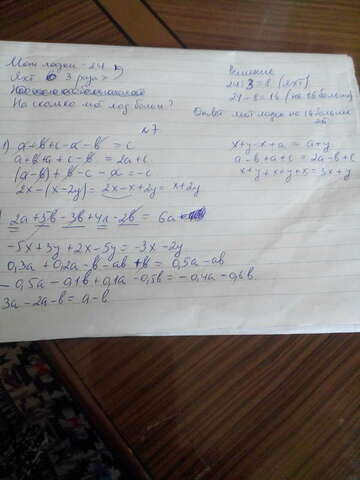 Мот лодки - 24
Яхт в 3 раза >
На сколько мот лод больш?
Решение
24:3=8 (яхт)
24-8=16 (на 16 больш)
Ответ мот лодок на 16 больше
№7
1) a+b+c-a-b=c
a+b+a+c-b=2a+c
(a-b)+b-c-a=-c
2x-(x-2y)=2x-x+2y=x+2y
x+y-x+a=a+y
a-b+a+c=2a-b+c
x+y+x+y+x=3x+y
2a+5b-3b+4a-2b=6a
-5x+3y+2x-5y=-3x-2y
0,3a+0,2a-b-ab+b=0,5a-ab
-0,5a-0,1b+0,1a-0,5b=-0,4a-0,6b
3a-2a-b=a-b